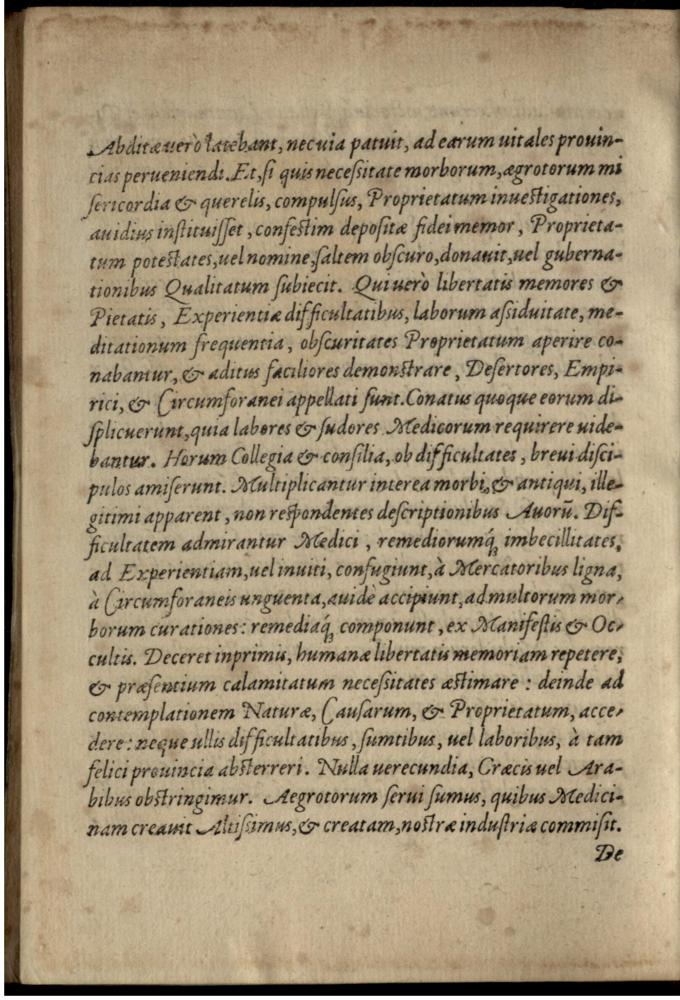 Abditæ uerò latebant, nec uia patuit, ad earum uitales prouin-
cias perueniendi. Et, ſi quis neceſsitate morborum, ægrotorum mi
ſericordia & querelis, compulſus, Proprietatum inueſtigationes,
auidius inſtituiſſet, confeſtim depoſitæ fidei memor, Proprieta-
tum poteſtates, uel nomine, ſaltem obſcuro, donauit, uel guberna-
tionibus Qualitatum ſubiecit. Qui uerò libertatis memores &
Pietatis, Experientiæ difficultatibus, laborum aſsiduitate, me-
ditationum frequentia, obſcuritates Proprietatum aperire co-
nabantur, & aditus faciliores demonſtrare, Deſertores, Empi-
rici, & Circumforanei appellati ſunt. Conatus quoque eorum di-
ſplicuerunt, quia labores & ſudores Medicorum requirere uide-
bantur. Horum Collegia & conſilia, ob difficultates, breui diſci-
pulos amiſerunt. Multiplicantur interea morbi, & antiqui, ille-
gitimi apparent, non reſpondentes deſcriptionibus Auorũ. Dif-
ficultatem admirantur Medici, remediorumq́ꝫ imbecillitates,
ad Experientiam, uel inuiti, confugiunt, à Mercatoribus ligna,
à Circumforaneis unguenta, auidè accipiunt, ad multorum mor-
borum curationes: remediaq́ꝫ componunt, ex Manifeſtis & Oc-
cultis. Deceret inprimis, humanæ libertatis memoriam repetere,
& præſentium calamitatum neceſsitates æſtimare: deinde ad
contemplationem Naturæ, Cauſarum, & Proprietatum, acce-
dere: neque ullis difficultatibus, ſumtibus, uel laboribus, à tam
felici prouincia abſterreri. Nulla uerecundia, Græcis uel Ara-
bibus obſtringimur. Aegrotorum ſerui ſumus, quibus Medici-
nam creauit Altiſsimus, & creatam, noſtræ induſtriæ commiſit.
De